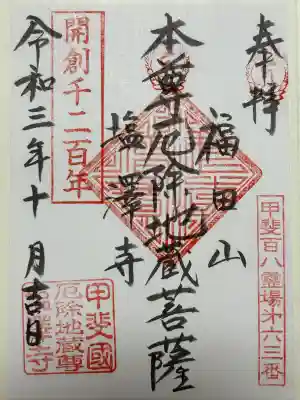 奉拝
甲斐百八霊場第六三番
福田山
本尊厄除地蔵菩薩
塩澤寺
開創千二百年
令和三年十月吉日
甲斐國
厄除地蔵尊